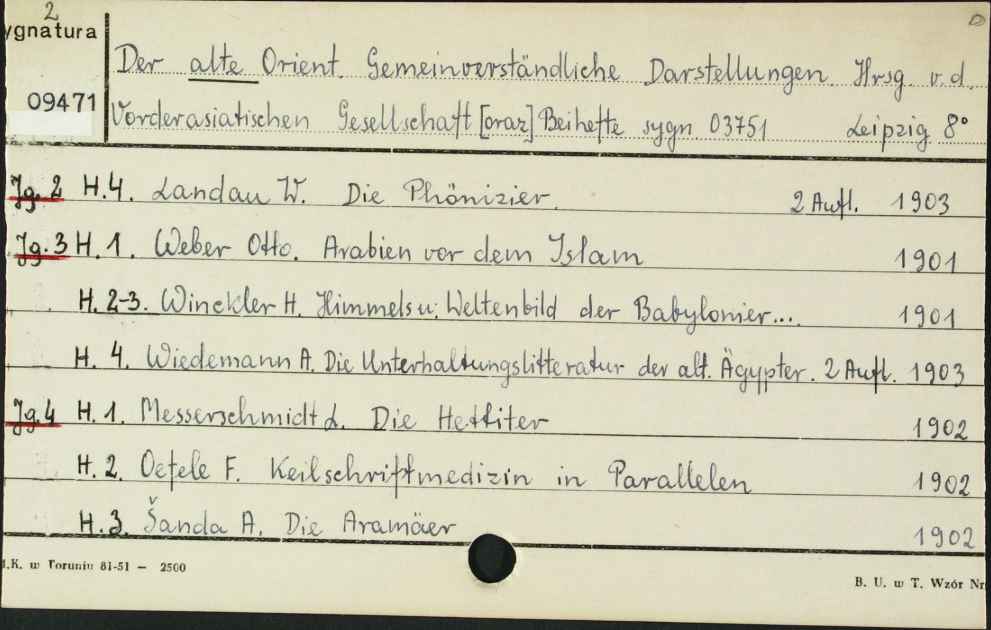 2
ygnatura
09471
Der alte Orient. Gemeinverständliche Darstellungen. Hrsg. v. d.
Vorderasiatischen Gesellschaft [oraz] Beihefte sygn 03751 Leipzig 8°
Jg. 2 H.4. Landau W. Die Phönizier. 2 Aufl. 1903
Jg. 3 H. 1. Weber Otto. Arabien vor dem Islam 1901
H. 2-3. Winckler H. Himmels u. Weltenbild der Babylonier... 1901
H. 4. Wiedemann A. Die Unterhaltungslitteratur der alt. Ägypter. 2 Aufl. 1903
Jg. 4 H. 1. Messerschmidt L. Die Hettiter 1902
H. 2. Oefele F. Keilschriftmedizin in Parallelen 1902
H. 3. Šanda A. Die Aramäer 1902
.K. w Toruniu 81-51 — 2500
B. U. w T. Wzór Nr